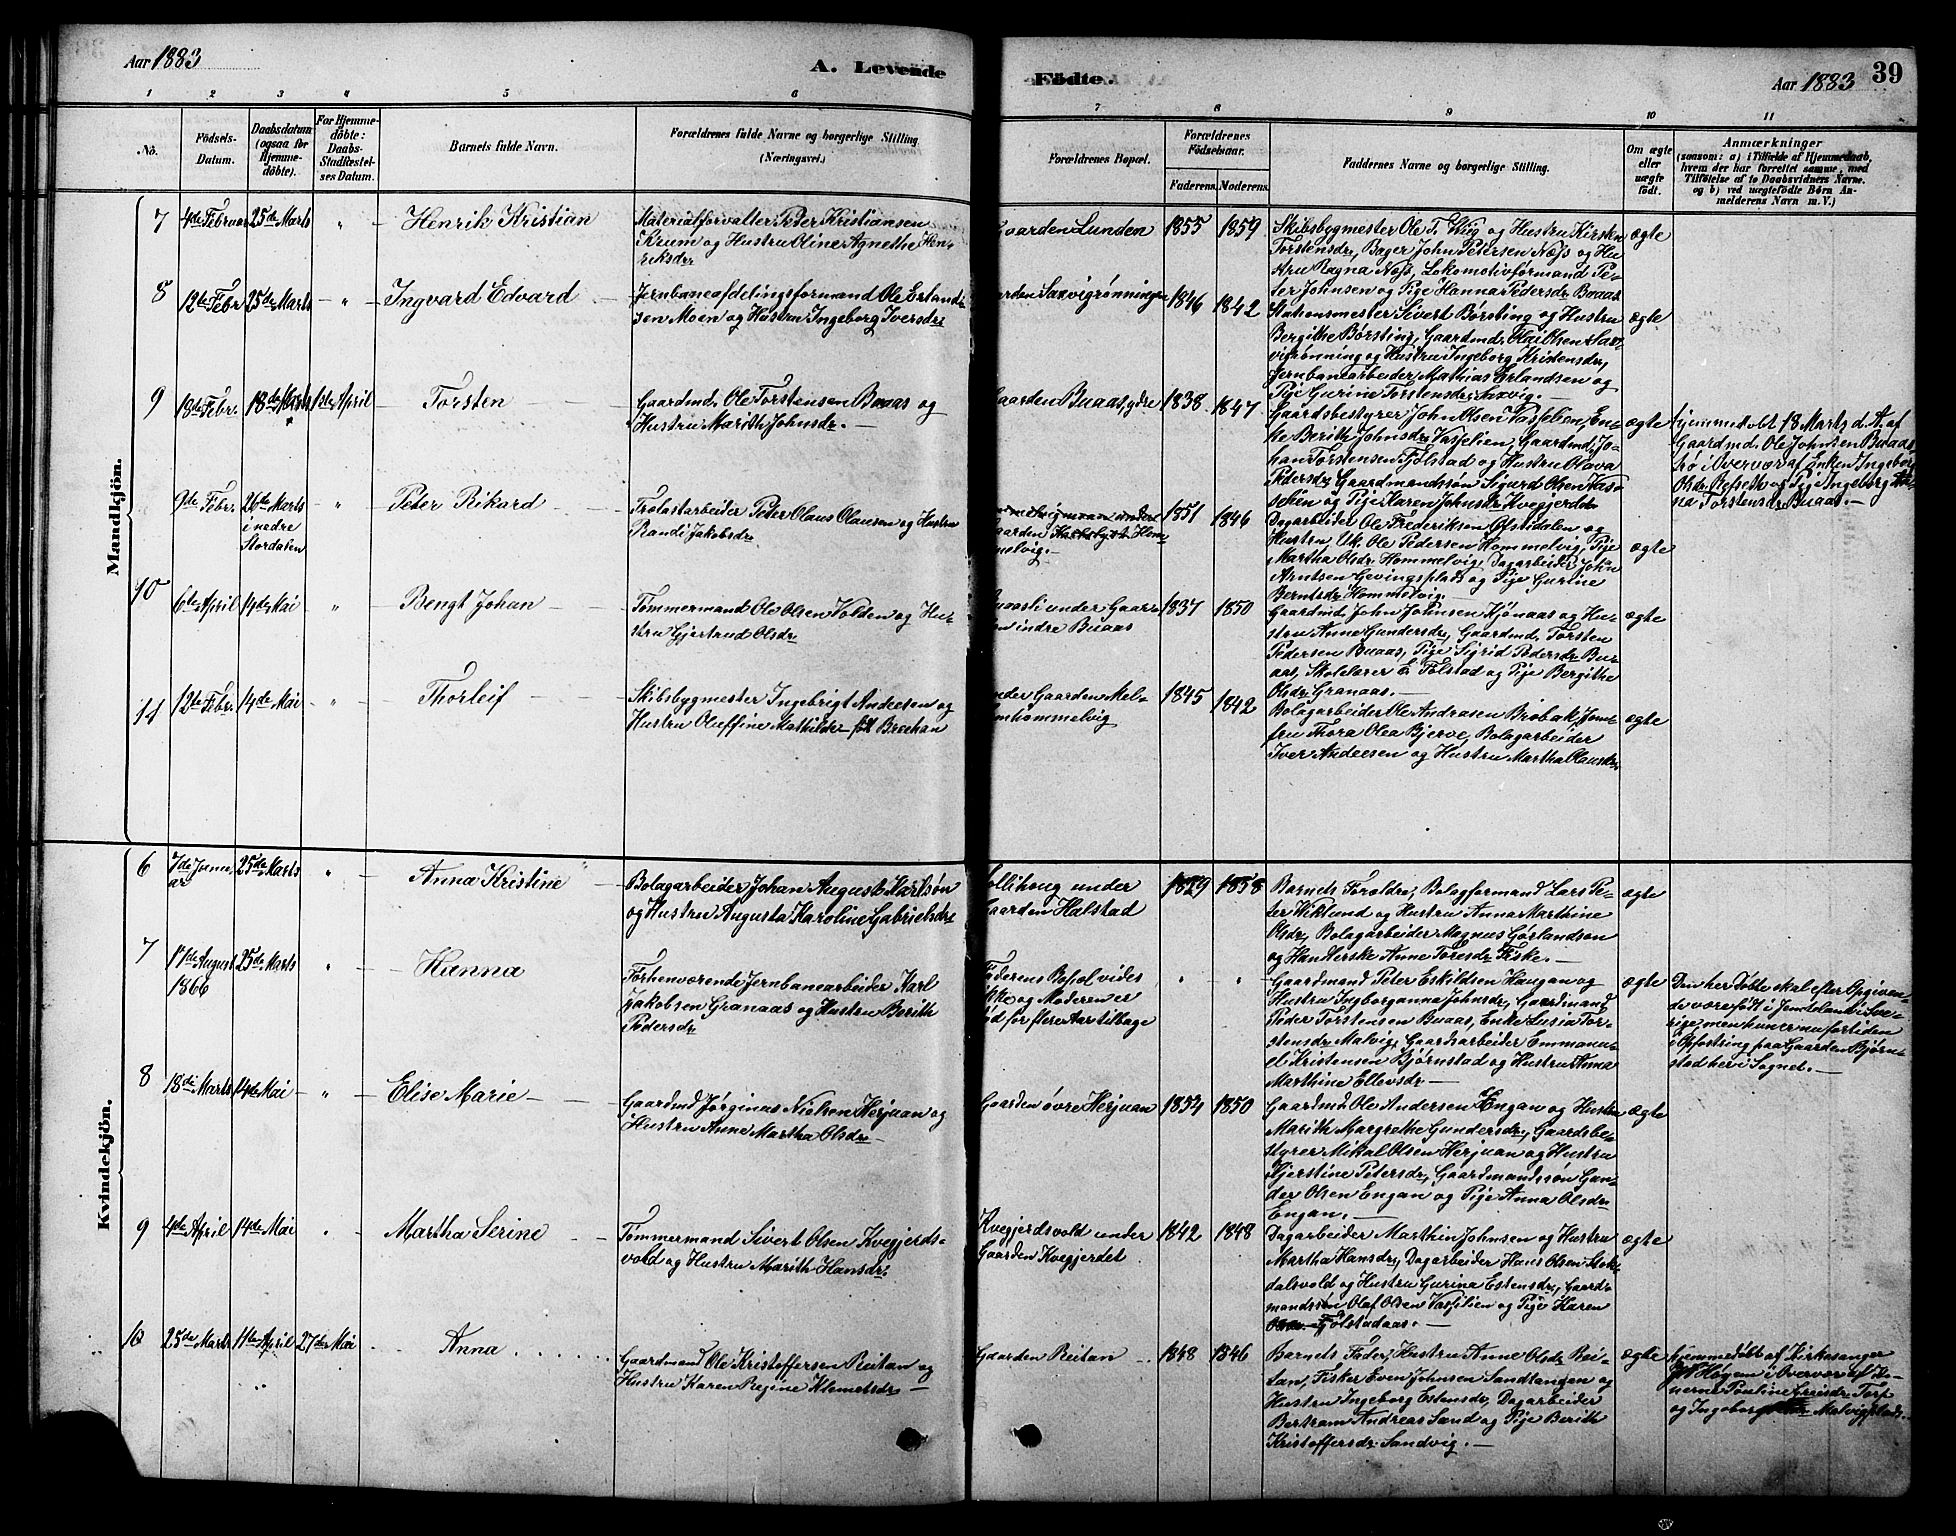 Aar 1883
A. Levende
Födte.
Aar 1883
39
1 2 3 4 5 6 7 8 9 10 11
No.
Födsels-
Datum.
Daabsdatum
(ogsaa for
Hjemme-
döbte).
For Hjemme-
döbte:
Daabs-
Stadfæstel-
ses Datum.
Barnets fulde Navn.
Forældrenes fulde Navne og borgerlige Stilling
(Næringsvei.)
Forældrenes Bopæl.
Forældrenes
Födselsaar.
Faderens. Moderens.
Faddernes Navne og borgerlige Stilling.
Om ægte
eller
uægte
födt.
Anmærkninger
(saasom: a) i Tilfælde af Hjemmedaab,
hvem der har forrettet samme, med
Tilföielse af to Daabsvidners Navne,
og b) ved uægtefödte Börn An-
melderens Navn m. V.)
Mandkjön.
7
4de Februar
25de Marts
"
Henrik Kristian
Materialforvalter Peter Kristiansen
Krum og Hustru Oline Agnethe Hen-
riksdr
Gaarden Lunden
1855
1859
Skibsbygmester Ole T. Wiig og Hustru Kirsten
Torstensdr, Bager John Petersen Næss og Hu-
stru Ragna Næss, Lokomotivførmand Pe-
ter Johnsen og Pige Hanna Pedersdr Buaas
ægte
8
12te Febr
25de Marts
"
Ingvard Edvard
Jernbaneafdelingsformand Ole Erland-
sen Moen og Hustru Ingeborg Iversdr
aarden Saxvigrønningen
1846
1842
Stationsmester Sivert Børsting og Hustru
Bergithe Børsting, Gaardmd. Olai Olsen Sax-
vigrønning og Hustru Ingeborg Kristensdr,
Jernbanearbeider Mathias Erlandsen og
Pige Gurine Torstensdr Saxvig.
ægte
9
18de Febr.
18de Marts
1ste April
Torsten
Gaardmd. Ole Torstensen Buaas og
Hustru Marith Johnsdr.
aarden Buaas, ydre
1838
1847
Gaardsbestyrer John Olsen Vasselien, En-
ke Berith Johnsdr Vasselien, Gaardmd. Jo-
han Torstensen Fölstad og Hustru Olava
Pedersdr, Gaardmandssön Sigurd Olsen Vas-
selien og Pige Karen Johnsdr Kvegjerdet
ægte
hjemmedöbt 18 Marts d. A. af
Gaardmd. Ole Johnsen Buaas
i Overvær af Enken Ingeborg
Olsdr og Pige Ingeborg
Torstensdr Buaas
9de Febr.
26de Marts
i nedre
Stordalen
"
Peter Rikard
Trolastarbeider Peter Olaus Olausen og Hustru
Randi Jakobsdr
aarden Hom-
melvig.
1851
1846
Dagarbeider Ole Frederiksen Olstidalen og
Hustru, Uk. Ole Pedersen Hommelvig, Pige
Martha Olsdr Hommelvig, Dagarbeider John
Arntsen Gevingsplads og Pige Gurine
Berntsdr Hommelvig.
ægte
10
6te April
14de Mai
"
Bengt Johan
Tømmermand Ole Olsen Volden og Hu-
stru Gjertrud Olsdr
Buaasli under Gaar-
den indre Buaas
1837
1850
Gaardmd. John Johnsen Kjønaas og Hu-
stru Anne Gundersdr, Gaardmd. Torsten
Pedersen Buaas, Pige Sigrid Pedersdr Bu-
aas, Skolelærer E. Fölstad og Pige Bergithe
Olsdr Granaas.
ægte
11
12te Febr.
14de Mai
"
Thorleif
Skibsbygmester Ingebrigt Andersen og
Hustru Oluffine Mathilde født Brochan
under Gaarden Mel-
lomhommelvig
1845
1842
Bolagarbeider Ole Andrasen Brobak, Jom-
fru Thora Olea Bjerve, Bolagarbeider
Iver Andersen og Hustru Martha Olausdr.
ægte
Kvindekjön.
6
7de Janu-
ar
25de Marts
"
Anna Kristine
Bolagarbeider Johan August Karlsøn
og Hustru Augusta Karoline Gabrielsdr
ollihoug under
Gaarden Halstad
1829
1858
Barnets Forældre, Bolagformand Lars Pe-
ter Wiklund og Hustru Anna Marthine
Olsdr, Bolagarbeider Magnus Görlandson
og Handlerske Anne Toresdr Fiske.
ægte
7
17de August
1866
25de Marts
"
Hanna
Forhenværende Jernbanearbeider Karl
Jakobsen Granaas og Hustru Berith
Pedersdr
Faderens Bopæl vides
ikke og Moderen er
död for flere Aar tilbage
"
"
Gaardmand Peter Eskildsen Haugan og
Hustru Ingeborganna Johnsdr, Gaardmand
Peder Torstensen Buaas, Enke Lusia Tor-
stensdr Malvig, Gaardsarbeider Emmanu-
el Kristensen Bjørnstad og Hustru Anna
Marthine Ellevsdr
ægte
Den her Døbte skal efter Opgiven-
de være født i Jemteland i Sve-
rige, men hun er nu for tiden
i Opfostring paa Gaarden Bjørn-
stad her i Sognet.
8
18de Marts
14de Mai
"
Elise Marie
Gaardmd Jørginus Nielsen Herjuan og
Hustru Anne Martha Olsdr
Gaarden övre Herjuan
1854
1850
Gaardmd. Ole Andersen Engan og Hustru
Marith Margrethe Gundersdr, Gaardsbe-
styrer Mikal Olsen Herjuan og Hustru
Kjerstine Petersdr, Gaardmandssøn Gun-
der Olsen Engan og Pige Anna Olsdr
Engan.
ægte
9
4de April
14de Mai
"
Martha Serine
Tømmermand Sivert Olsen Kvegjerds-
vold og Hustru Marith Hansdr.
Kvegjerdsvold under
Gaarden Kvegjerdet
1842
1848
Dagarbeider Marthin Johnsen og Hustru
Martha Hansdr, Dagarbeider Hans Olsen Stok-
dalsvold og Hustru Gurina Estensdr, Gaard-
mandssön Olaf Olsen Vasselien og Pige Karen
Fölstadaas.
ægte
10
25de Marts
11te April
27de Mai
Anna
Gaardmand Ole Kristoffersen Reitan og
Hustru Karen Regine Klemetsdr
Gaarden Reitan
1848
1846
Barnets Fader, Hustru Anne Olsdr Rei-
tan, Fisker Even Johnsen Sandtangen og
Hustru Ingeborg Estensdr, Dagarbeider
Bertram Andreas Sand og Pige Berith
Kristoffersdr Sandvig.
ægte
hjemmedöbt af Kirkesanger
Høyem i Overvær af Ko-
nerne Pauline Torp
og Ingeborg Malvigplads.